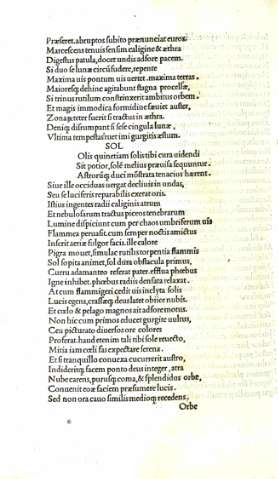 Præseret. abruptos subito prænunciat euros.
Marcescens tenuis sensim caligine & æthra
Digestus patula, docet undis adfore pacem.
Si duo se lunæ circūfudere, repente
Maxima uis pontum uis uertet. maxima terras.
Maioresq; dehinc agitabunt stagna procellæ,
Si trinus rutilum constrinxerit ambitus orbem.
Et magis immodica formidine sæuiet auster,
Zonaq; teter fuerit si tractus in æthra.
Deniq; disrumpant si sese cingula lunæ,
Vltima tempestas ruet imi gurgitis æstum.
SOL
Olis quinetiam solis tibi cura uidendi
Sit potior, solē melius præuisa sequuntur.
Astrorūq; duci mōstrata tenacius hærent.
Siue ille occiduas uergat decliuis in undas,
Seu se luciferis reparabilis exerat oris.
Istius ingentes radii caliginis atram
Et nebulosarum tractus piceos tenebrarum
Lumine dispiciunt cum per chaos umbriferum uis
Flammea peruasit. cum semper noctis amictus
Inserit aeriæ fulgor facis. ille calore
Pigra mouet, simulac rutilis torpentia flammis
Sol sopita animet, sol dura obstacula primus,
Curru adamanteo referat pater. effusa phœbus
Igne inhibet. phœbus radiis densata relaxat.
At cum flammigeri cedit uis inclyta solis
Lucis egena, crassæq; deu latet obice nubis.
Et cælo & pelago magnos ait adfore motus.
Non hic cum primos educet gurgite uultus,
Ceu picturato diuersos ore colores
Proferat. haud etenim tali tibi sole reuecto,
Mitia iam cœli fas expectare serena.
Et si tranquillo conuexa cucurrerit austro,
Indideritq; facem ponto deus integer, atra
Nube carens, purusq; coma, & splendidus orbe,
Conuenit eoæ faciem præsumere lucis.
Sed non ora cauo similis medioq; recedens,
Orbe